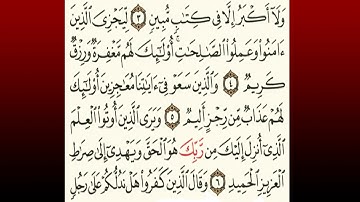 وَلَآ أَكْبَرُ إِلَّا فِى كِتَٰبٍ مُّبِينٍ ٣ لِّيَجْزِىَ ٱلَّذِينَ
ءَامَنُوا۟ وَعَمِلُوا۟ ٱلصَّٰلِحَٰتِ ۚ أُو۟لَٰٓئِكَ لَهُم مَّغْفِرَةٌ وَرِزْقٌ
كَرِيمٌ ٤ وَٱلَّذِينَ سَعَوْ فِىٓ ءَايَٰتِنَا مُعَٰجِزِينَ أُو۟لَٰٓئِكَ
لَهُمْ عَذَابٌ مِّن رِّجْزٍ أَلِيمٌ ٥ وَيَرَى ٱلَّذِينَ أُوتُوا۟ ٱلْعِلْمَ
ٱلَّذِىٓ أُنزِلَ إِلَيْكَ مِن رَّبِّكَ هُوَ ٱلْحَقَّ وَيَهْدِىٓ إِلَىٰ صِرَٰطِ
ٱلْعَزِيزِ ٱلْحَمِيدِ ٦ وَقَالَ ٱلَّذِينَ كَفَرُوا۟ هَلْ نَدُلُّكُمْ عَلَىٰ رَجُلٍ